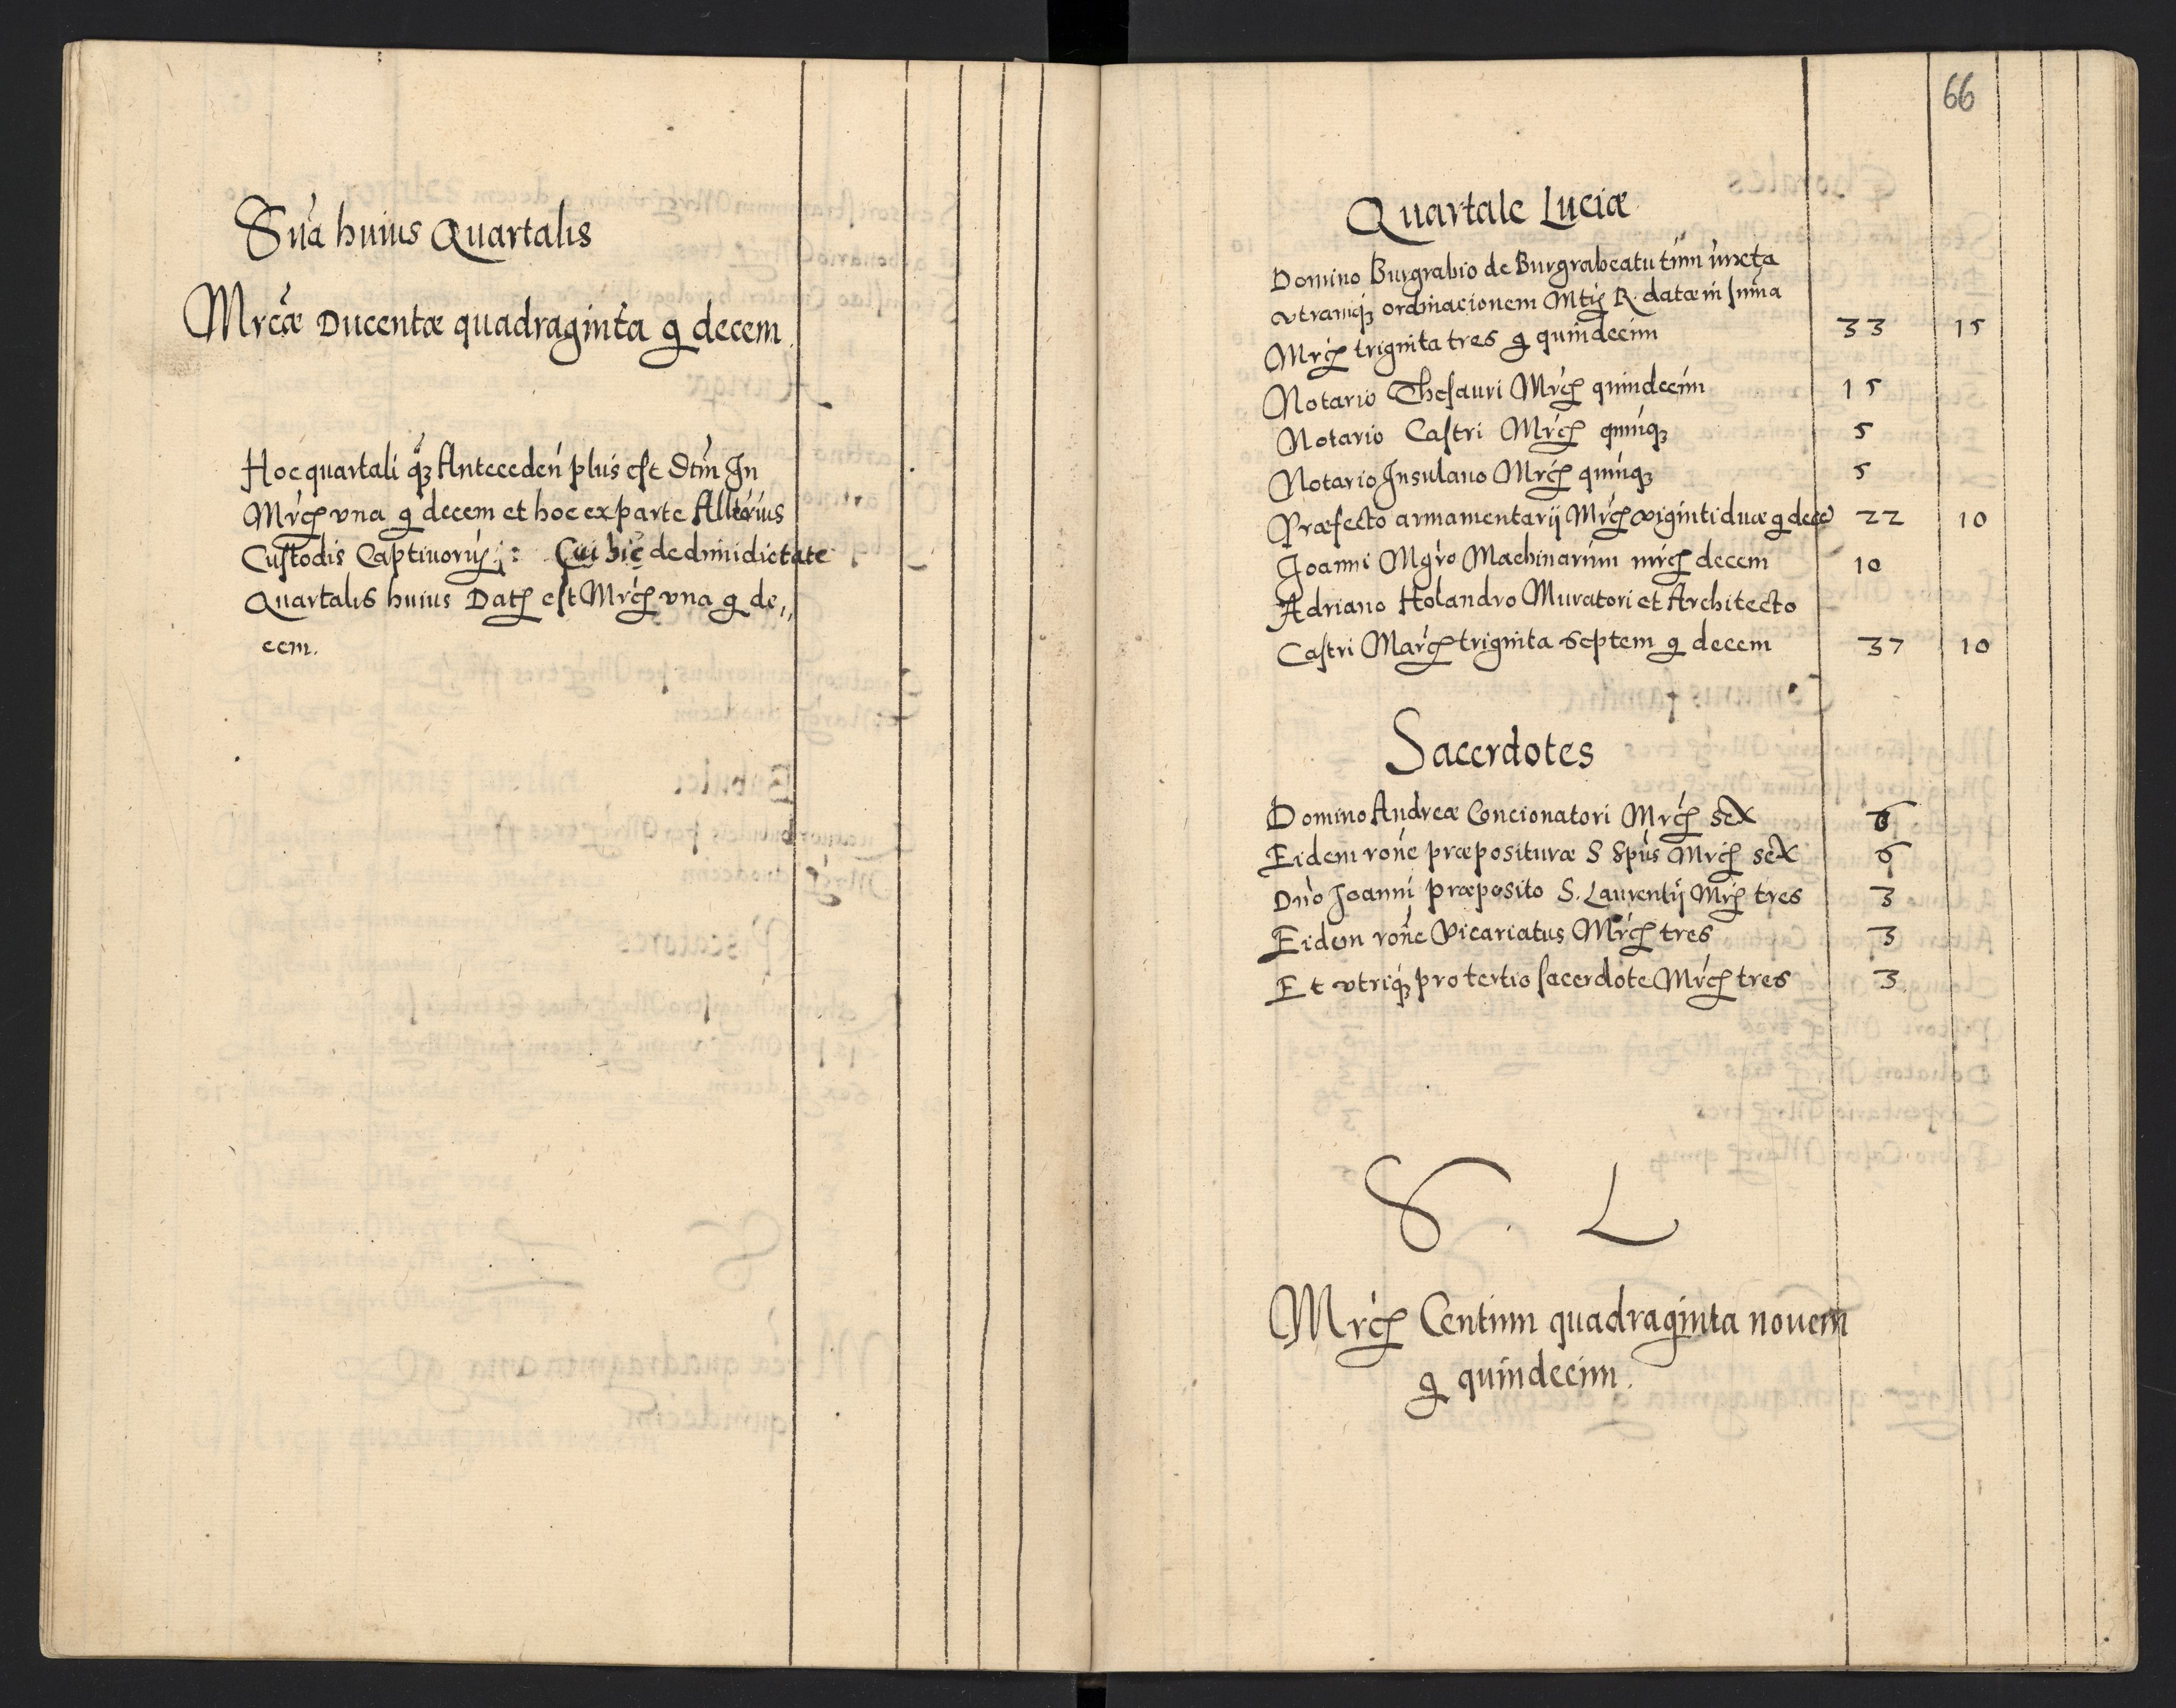 Sũa huius Quartalis
Mrcæ Ducentæ quadraginta g decem.
Hoc quartali qꝫ Anteceden plus est Dtm In
Mrcꝭ vna g decem et hoc ex parte Alterius
Custodis Captivorũ: Cui hic de dimidietate
Quartalis huius Datꝭ est Mrcꝭ vna g de,,
cem.
66
Quartale Luciæ
Domino Burgrabio de Burgrabeatu tum iuxta
vtramqꝫ ordinacionem Mtis R. datæ in suma
Mrcꝭ triginta tres g quindecim 33 15
Notario Thesauri Mrcꝭ quindecim 15
Notario Castri Mrcꝭ quinqꝫ 5
Notario Insulano Mrcꝭ quinqꝫ 5
Præfecto armamentarij Mrcꝭ viginti duæ g dece 22 10
Joanni Mgro Machinarum mrcꝭ decem 10
Adriano Holandro Muratori et Architecto
Castri Marcꝭ triginta septem g decem 37 10
Sacerdotes
Domino Andreæ Concionatori Mrcꝭ sex 6
Eidem rone præpositurae S Spũs Mrcꝭ sex 6
Dno Joanni præposito S. Laurentij Mrcꝭ tres 3
Eidem rone Vicariatus Mrcꝭ tres 3
Et vtriqꝫ pro tertio sacerdote Mrcꝭ tres 3
S. L
Mrcꝭ Centum quadraginta novem
g quindecim.